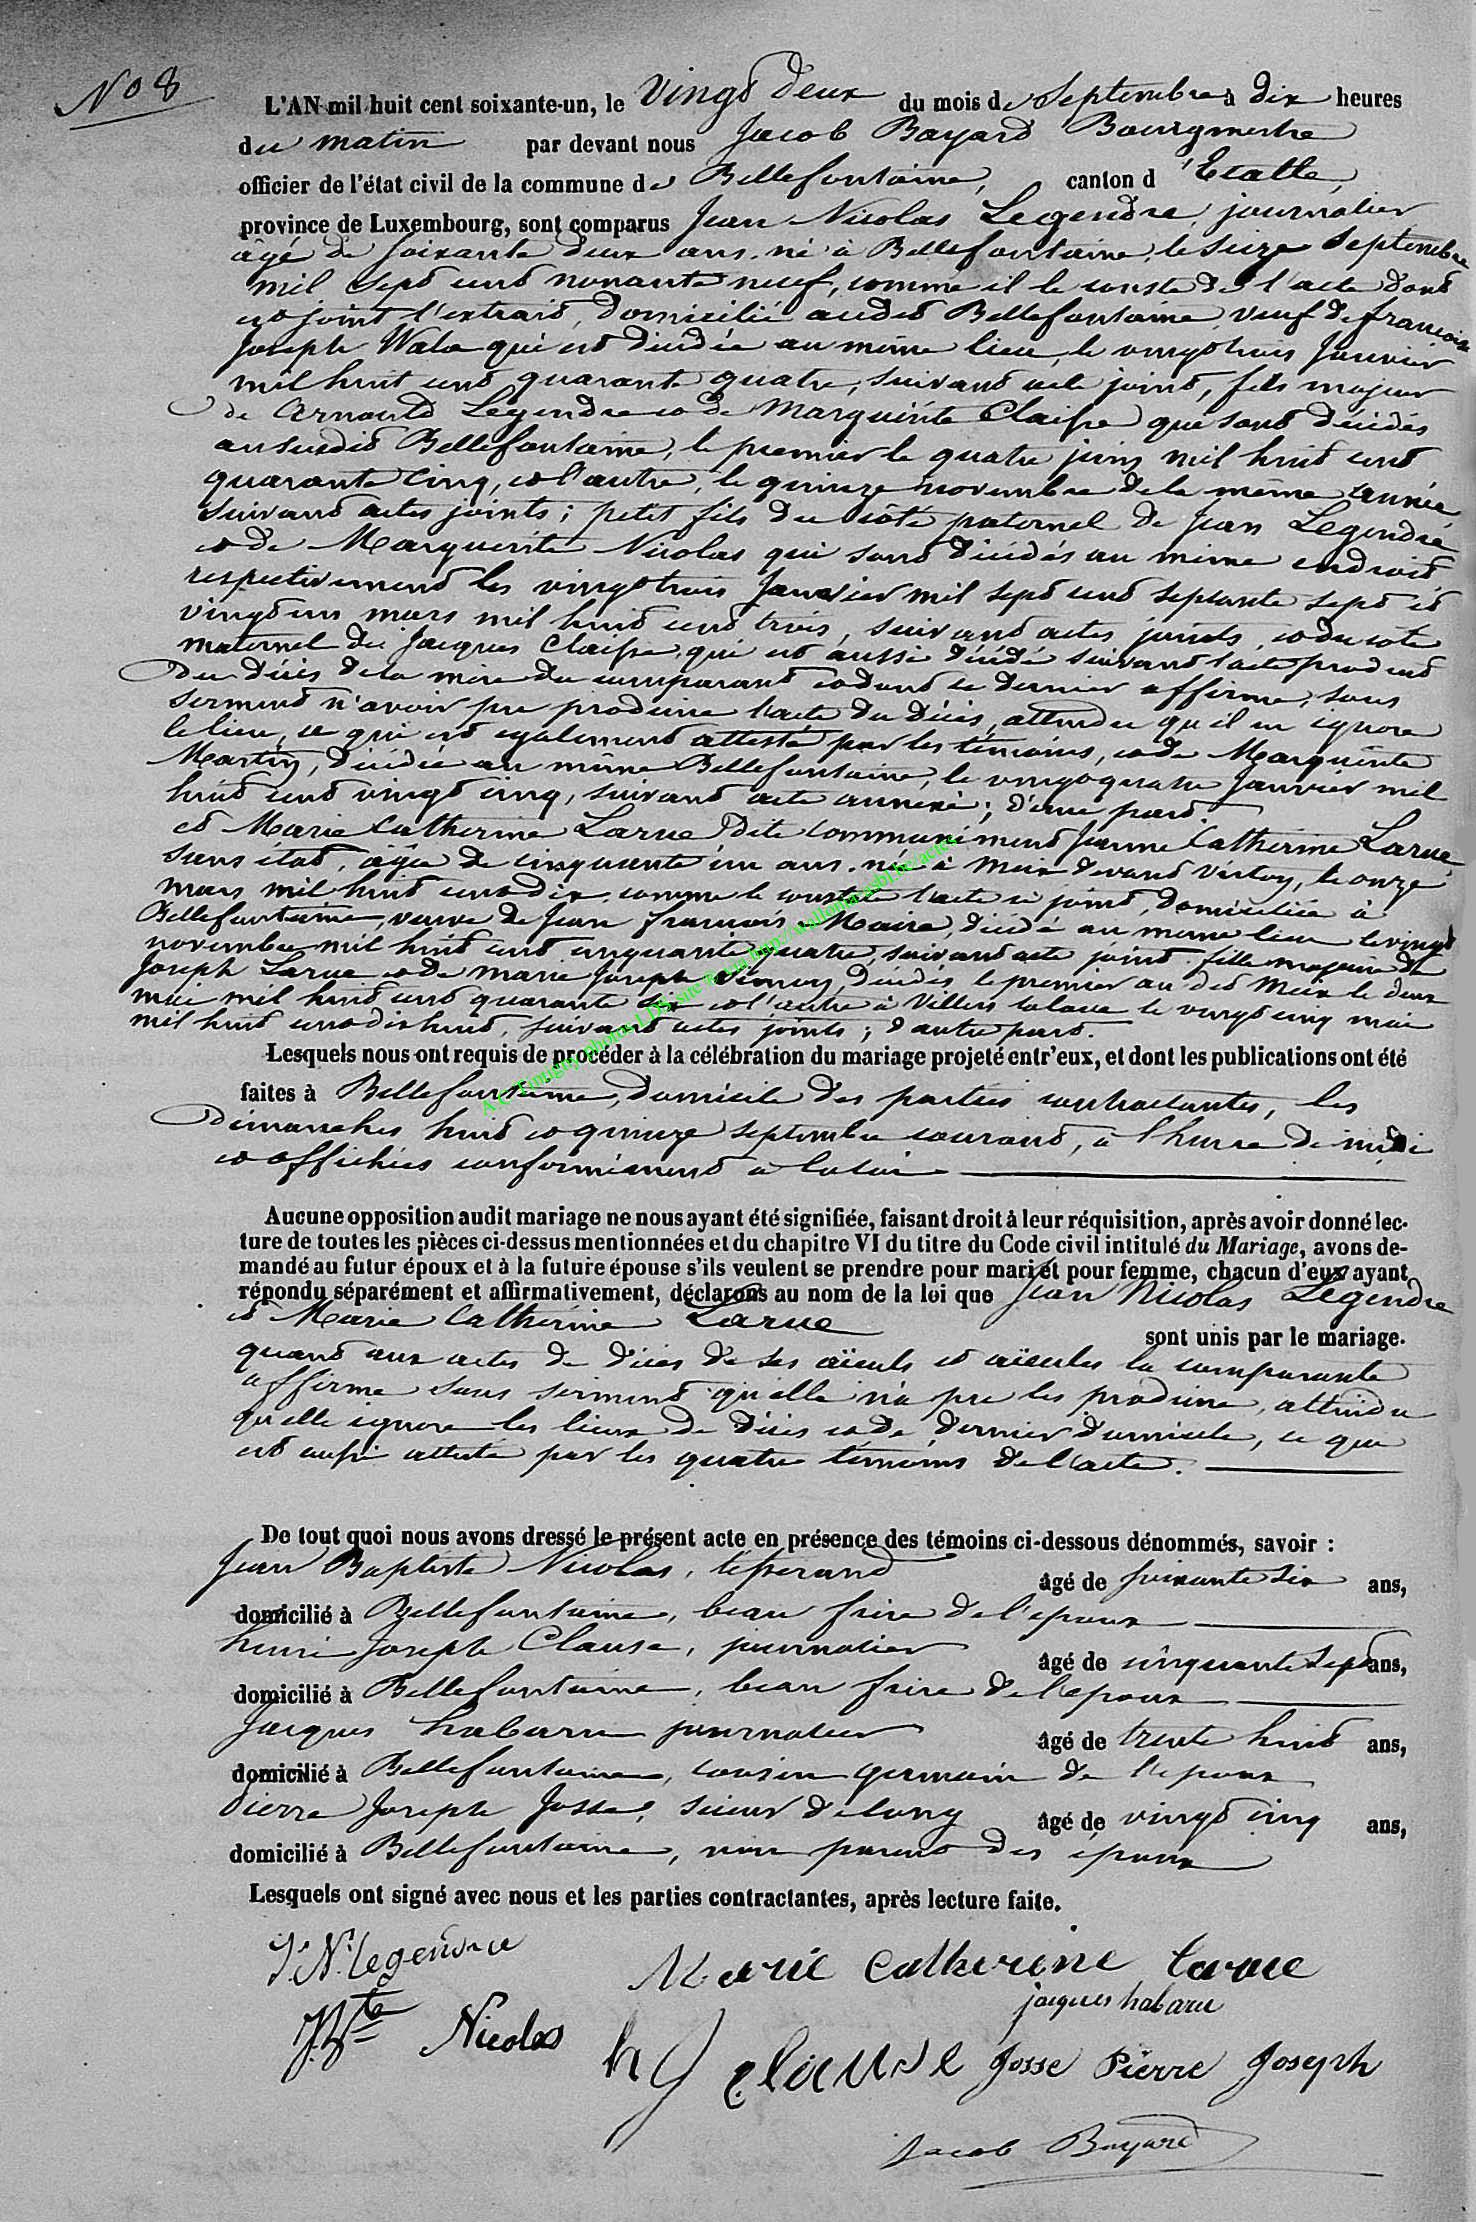 No 8
L'AN mil huit cent soixante-un, le vingt deux du mois de Septembre à dix heures
du matin par devant nous Jacob Bayard Bourgmestre
officier de l'état civil de la commune de Bellefontaine, canton d'Etalle,
province de Luxembourg, sont comparus Jean Nicolas Legendre, journalier
âgé de soixante deux ans, né à Bellefontaine, le seize Septembre
mil sept cent nonante neuf, comme il le conste de l'acte dont
est joint l'extrait, domicilié audit Bellefontaine, veuf de françoise
Joseph Wala qui est décédée au même lieu, le vingt trois Janvier
mil huit cent quarante quatre, suivant acte joint, fils majeur
de Arnould Legendre et de Marguerite Claisse que sont décédés
au susdit Bellefontaine, le premier le quatre juin mil huit cent
quarante cinq, et l'autre, le quinze novembre de la même année,
suivant actes joints ; petit fils du côté paternel de Jean Legendre
et de Marguerite Nicolas qui sont décédés au même endroit
respectivement les vingt trois Janvier mil sept cent septante sept et
vingt un mars mil huit cent trois, suivant actes joints, et du côté
maternel de Jacques Claisse, qui est aussi décédé suivant l'acte produit
du décès de la mère du comparant et dont ce dernier affirme, sous
serment n'avoir pu produire l'acte du décès, attendu qu'il en ignore
le lieu, ce qui est également attesté par les témoins, et de Marguerite
Martin, décédée au même Bellefontaine, le vingt quatre Janvier mil
huit cent vingt cinq, suivant acte annexé ; d'une part.
et Marie Catherine Larue dite communément Jeanne Catherine Larue,
sans état, âgée de cinquante un ans, née à Meix devant Virton, le onze
mars mil huit cent dix, comme le conste l'acte ci joint, domiciliée à
Bellefontaine, veuve de Jean françois Maire, décédé au même lieu le vingt
novembre mil huit cent cinquante quatre, suivant acte joint, fille majeure de
Joseph Larue et de marie Joseph décédés, le premier au dit Meix le deux
mai mil huit cent quarante six et l'autre à Villers laloue le vingt cinq mai
mil huit cent dix huit, suivant actes joints ; d'autre part.
Lesquels nous ont requis de procéder à la célébration du mariage projeté entr'eux, et dont les publications ont été
faites à Bellefontaine, domicile des parties contractantes, les
dimanches huit et quinze septembre courant, à l'heure de midi
et affichées conformément à la loi
Aucune opposition audit mariage ne nous ayant été signifiée, faisant droit à leur réquisition, après avoir donné lec-
ture de toutes les pièces ci-dessus mentionnées et du chapitre VI du titre du Code civil intitulé du Mariage, avons de-
mandé au futur époux et à la future épouse s'ils veulent se prendre pour mari et pour femme, chacun d'eux ayant
répondu séparément et affirmativement, déclarons au nom de la loi que Jean Nicolas Legendre
et Marie Catherine Larue sont unis par le mariage.
quant aux actes de décès de ses aïeuls et aïeules la comparante
affirme sous serment qu'elle n'a pu les produire, attendu
qu'elle ignore les lieux de décès et de dernier domicile, ce qui
est aussi attesté par les quatre témoins de l'acte.
De tout quoi nous avons dressé le présent acte en présence des témoins ci-dessous dénommés, savoir :
Jean Baptiste Nicolas, tisserand âgé de soixante six ans,
domicilié à Bellefontaine, beau frère de l'époux
henri Joseph Clause, journalier âgé de cinquante sept ans,
domicilié à Bellefontaine, beau frère de l'époux
Jacques habaru journalier âgé de trente huit ans,
domicilié à Bellefontaine, cousin germain de l'époux
Pierre Joseph Josse, scieur de long âgé de vingt cinq ans,
domicilié à Bellefontaine, non parent des époux
Lesquels ont signé avec nous et les parties contractantes, après lecture faite.
J. N. Legendre
Marie Catherine Larue
jacques habaru
J. Bte Nicolas
h J Clause Josse Pierre Joseph
Jacob Bayard